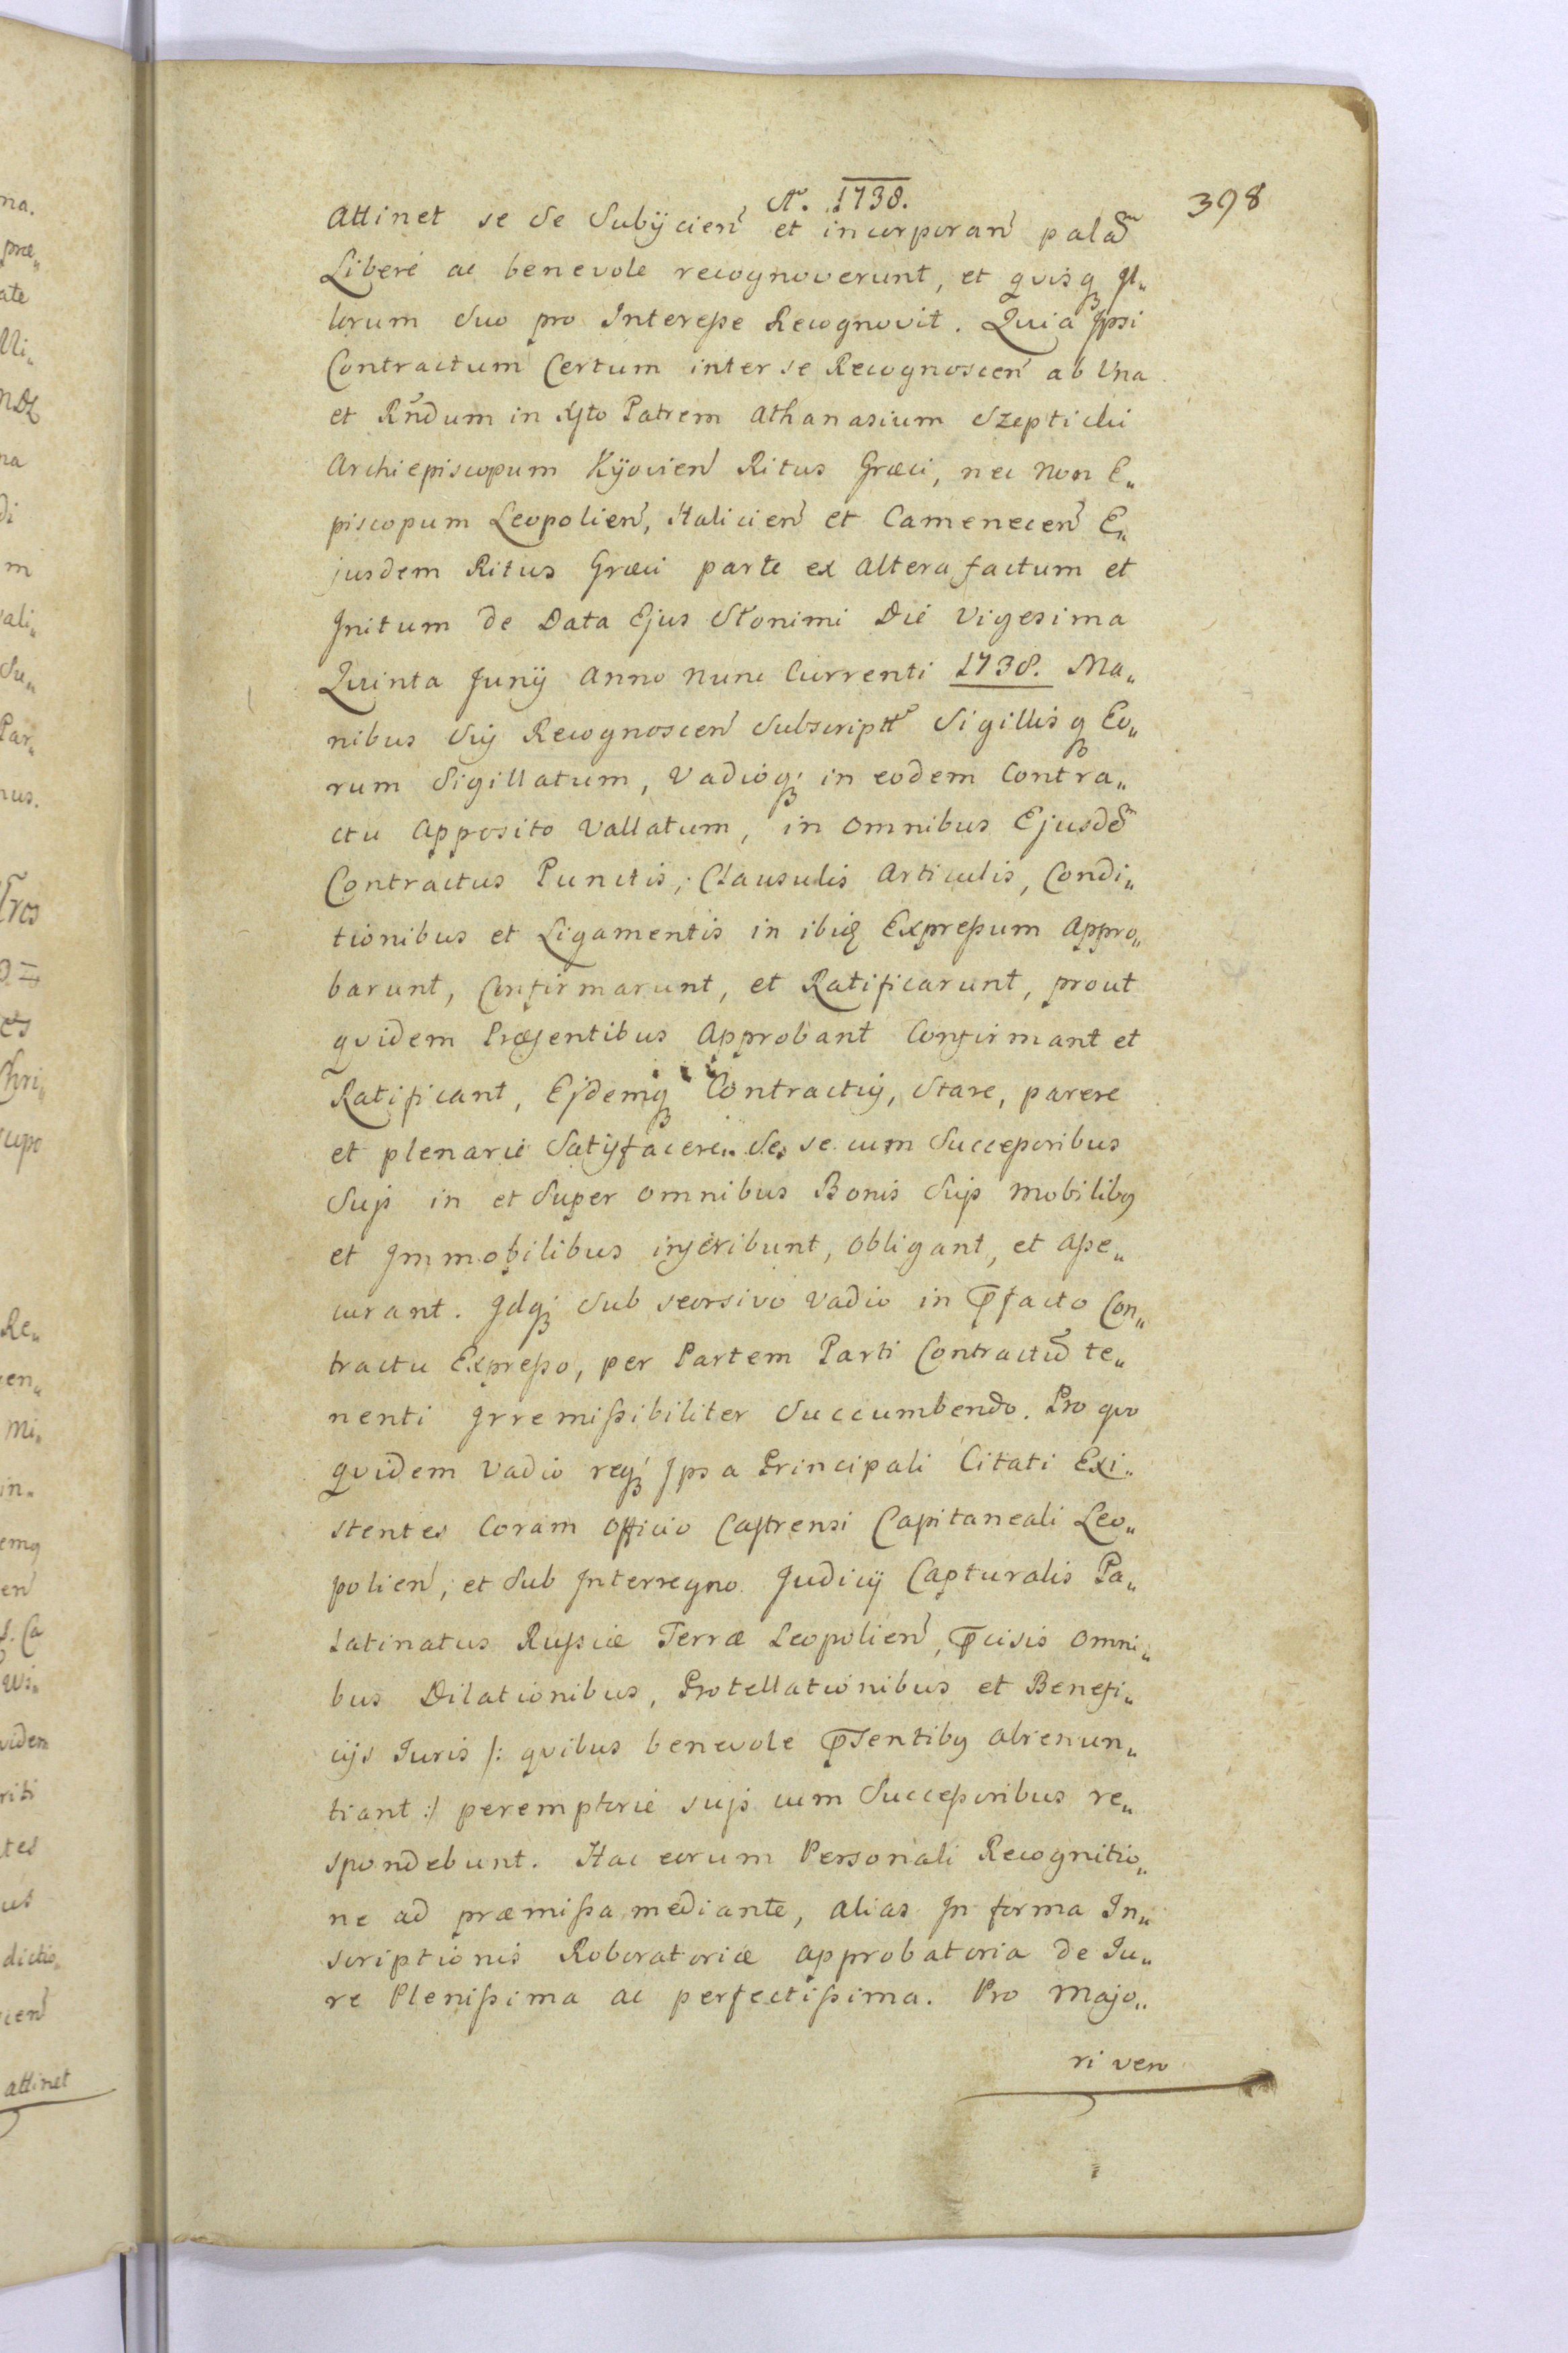 A. 1738.
398
Attinet se se Subÿcien et incorporan palam
Liberé ac benevole recognoverunt, et quisq Il„
lorum Suo pro Interesse Recognovit. Quia Ipsi
Contractum Certum inter se Recognoscen ab Una
et Rndum in Xto Patrem Athanasium Szepticki
Archiepiscopum Kÿovien Ritus Græci, nec Non E„
piscopum Leopolien, Halicien et Camenecen E„
jusdem Ritus Græci parte ex Altera factum et
Initum de Data Ejus Słonimi Die Vigesima
Quinta Junÿ Anno Nunc Currenti 1738. Ma„
nibus Sŭj Recognoscen Subscript Sigillisq Eo„
rum Sigillatum, Vadioq; in eodem Contra„
ctu Apposito Vallatum, in omnibus Ejusdẽ
Contractus Punctis, Clausulis Articulis, Condi„
tionibus et Ligamentis in ibiq Expressum Appro„
barunt, Confirmarunt, et Ratificarunt, prout
quidem Præsentibus Approbant Confirmant et
Ratificant, Ejsdemq Contractuj, Stare, parere
et plenarie Satisfacere„ Se, se cum Successoribus
Sujs in et Super omnibus Bonis Sujs Mobilibq
et Immobilibus inscribunt, obligant, et Asse„
curant. Idq; Sub seorsivo Vadio in p̄facto Con„
tractu Expresso, per Partem Parti Contractũ te„
nenti Irremissibiliter Succumbendo. Pro quo
quidem Vadio req; Ipsa Principali Citati Exi„
stentes Coram Officio Castrensi Capitaneali Leo„
polien, et Sub Interregno Judicÿ Capturalis Pa„
latinatus Russiæ Terræ Leopolien, p̄cisis omni„
bus Dilationibus, Protellationibus et Benefi„
cÿs Juris /: quibus benevole p̄sentibq Abrenun„
tiant :/ peremptorie sujs cum Successoribus re„
spondebunt. Hac eorum Personali Recognitio„
ne ad præmissa mediante, alias In forma In„
scriptionis Roboratoriæ approbatoria de Ju„
re Plenissima ac perfectissima. Pro Majo„
ri vero